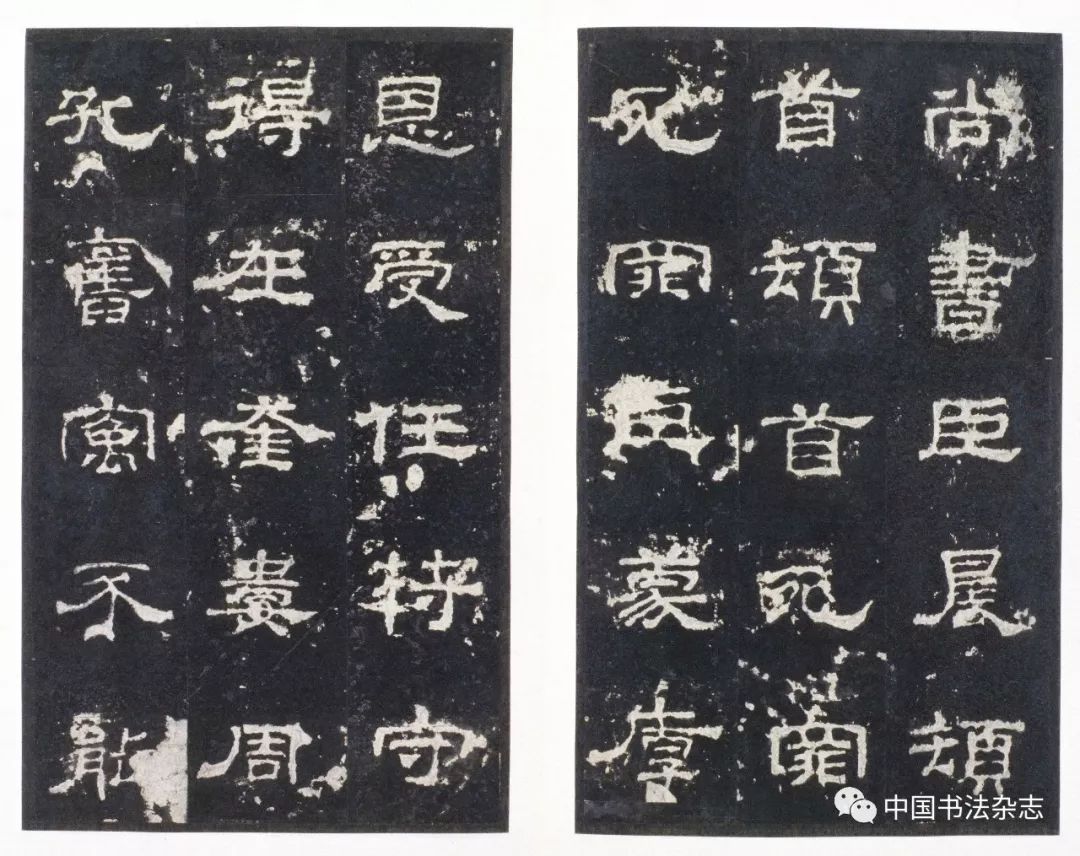 尚書臣晨頓
首頓首死罪
死罪臣蒙厚
恩受任符守
得在奎婁周
孔舊寓不能
中国书法杂志